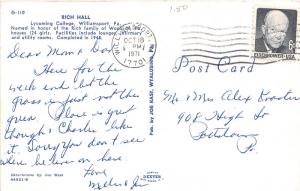 G-110
RICH HALL
Lycoming College, Williamsport, Pa.
Named in honor of the Rich family of Woolrich, Pa.
houses 124 girls. Facilities include lounge, infirmary
and utility rooms. Completed in 1948.
Dear Mom & Dad,
Here for the
week end but the
grass is just not the
green. Place is great
though & Charlie likes
it. Sorry you don't see
where he live on here
Love
Ektachrome by Joe Wast
44021-B
DEXTER
Pub. by JOE KARR, WILLIAMSPORT, PA.
1.50
PM
1971
177
EISENHOWER · USA
8c
Post Card
Mr & Mrs Alex
908 High St
Pottstown
Pa.